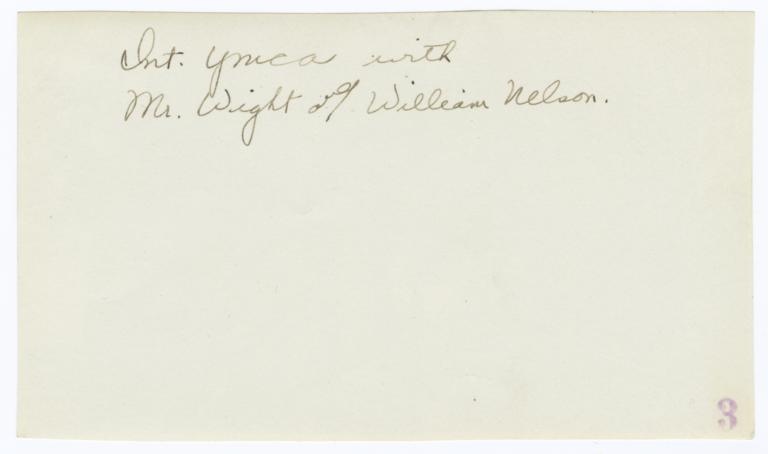 Int. YMCA with
Mr. Wight and William Nelson.
3